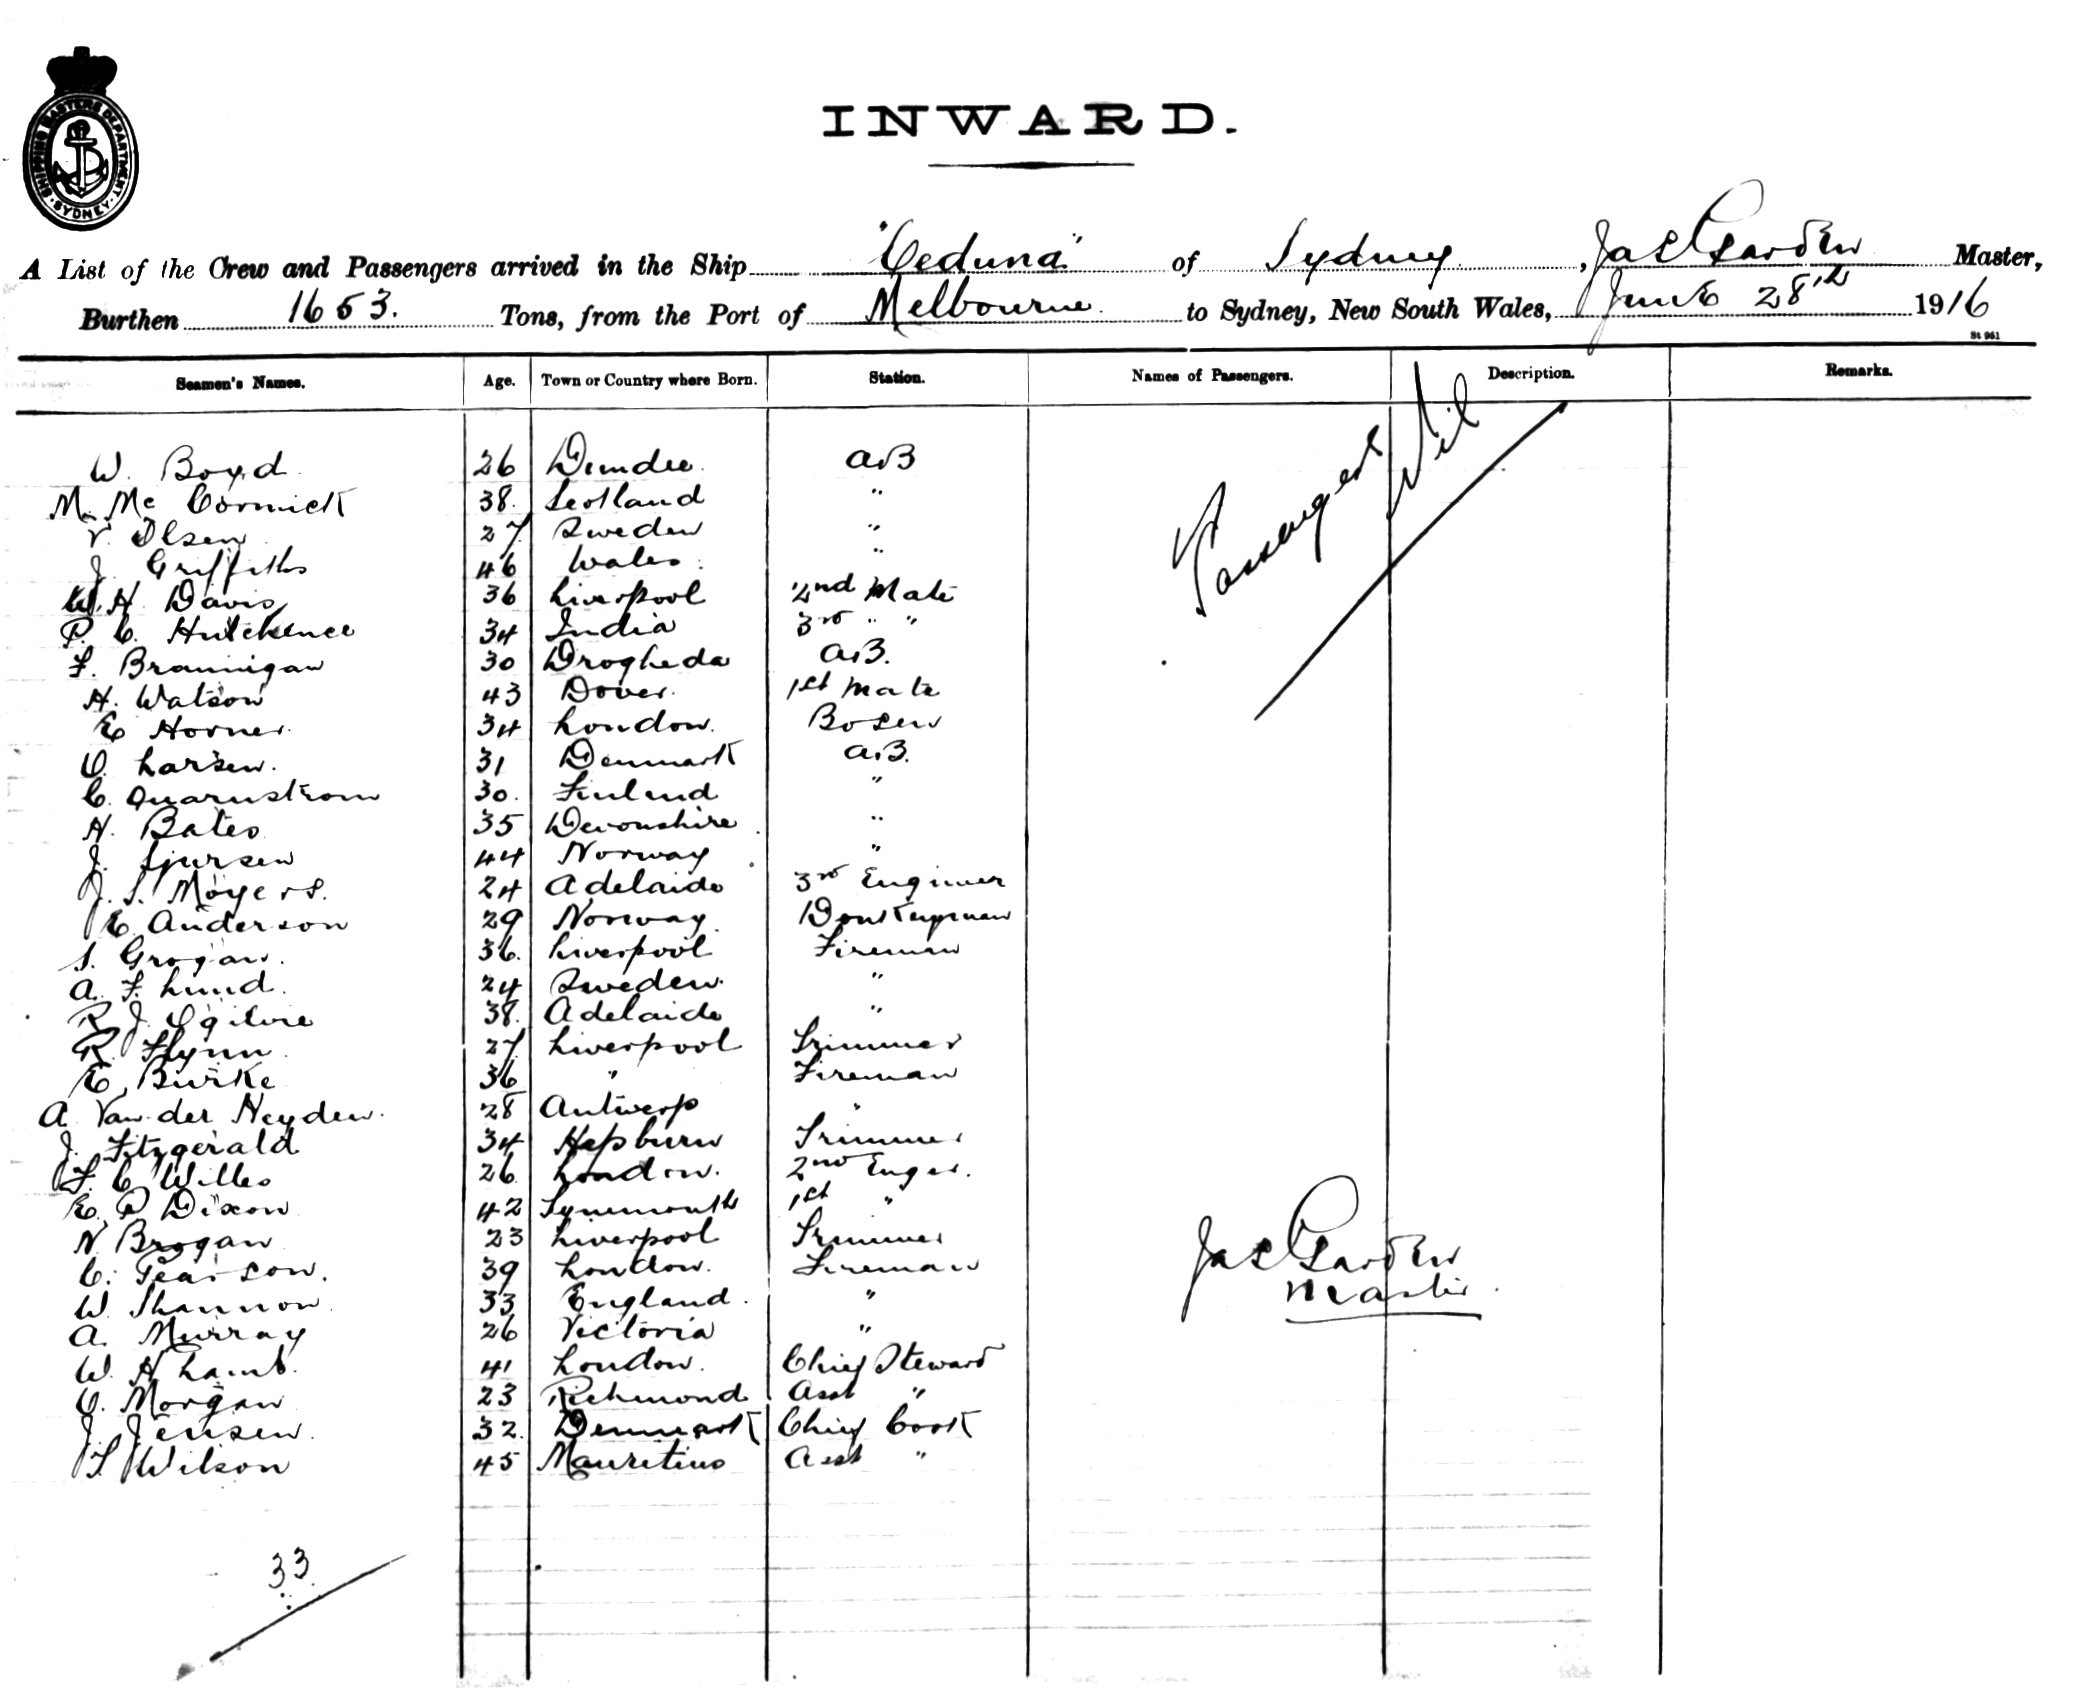 SHIPPING MASTERS DEPARTMENT
SYDNEY
INWARD.
A List of the Crew and Passengers arrived in the Ship "Ceduna" of Sydney, Jas Garden Master,
Burthen 1653. Tons, from the Port of Melbourne to Sydney, New South Wales, June 28th 1916
St 961
Seamen's Names. Age. Town or Country where Born. Station. Names of Passengers. Description. Remarks.
Passengers Nil
W. Boyd 26 Dundee. A.B
M. Mc Cormick 38. Scotland "
V. Olsen 27 Sweden "
J. Griffiths 46 Wales "
W. H. Davis 36 Liverpool 2nd Mate
P. C. Hutchence 34 India 3rd " "
F. Brannigan 30 Drogheda A.B.
H. Watson 43 Dover. 1st Mate
E Horner 34 London. Bosen
O. Larsen. 31 Denmark A.B.
C. Quarnstrom 30. Finland "
H. Bates 35 Devonshire "
J. Sjursen 44 Norway "
J. S. Moyers. 24 Adelaide 3rd Engineer
E. Anderson 29 Norway. Donkeyman
S. Grogan. 36. Liverpool Fireman
A. F. Lund. 24 Sweden. "
R. J. Ogilvie 38. Adelaide "
R. Flynn 27 Liverpool Trimmer
E. Burke 36 " Fireman
A. Van der Heyden. 28 Antwerp "
J. Fitzgerald 34 Hepburn Trimmer
F. C. Willes 26. London. 2nd Enger.
E. P Dixon 42 Tynemouth 1st "
N. Brogan 23 Liverpool Trimmer
C. Pearson. 39 London. Fireman
W. Shannon. 33 England. "
A. Murray 26 Victoria "
W. H Lamb. 41 London. Chief Steward
O. Morgan 23 Richmond Asst "
J. Jensen. 32. Denmark Chief Cook
F Wilson 45 Mauritius Asst "
Jas Garden
Master
33